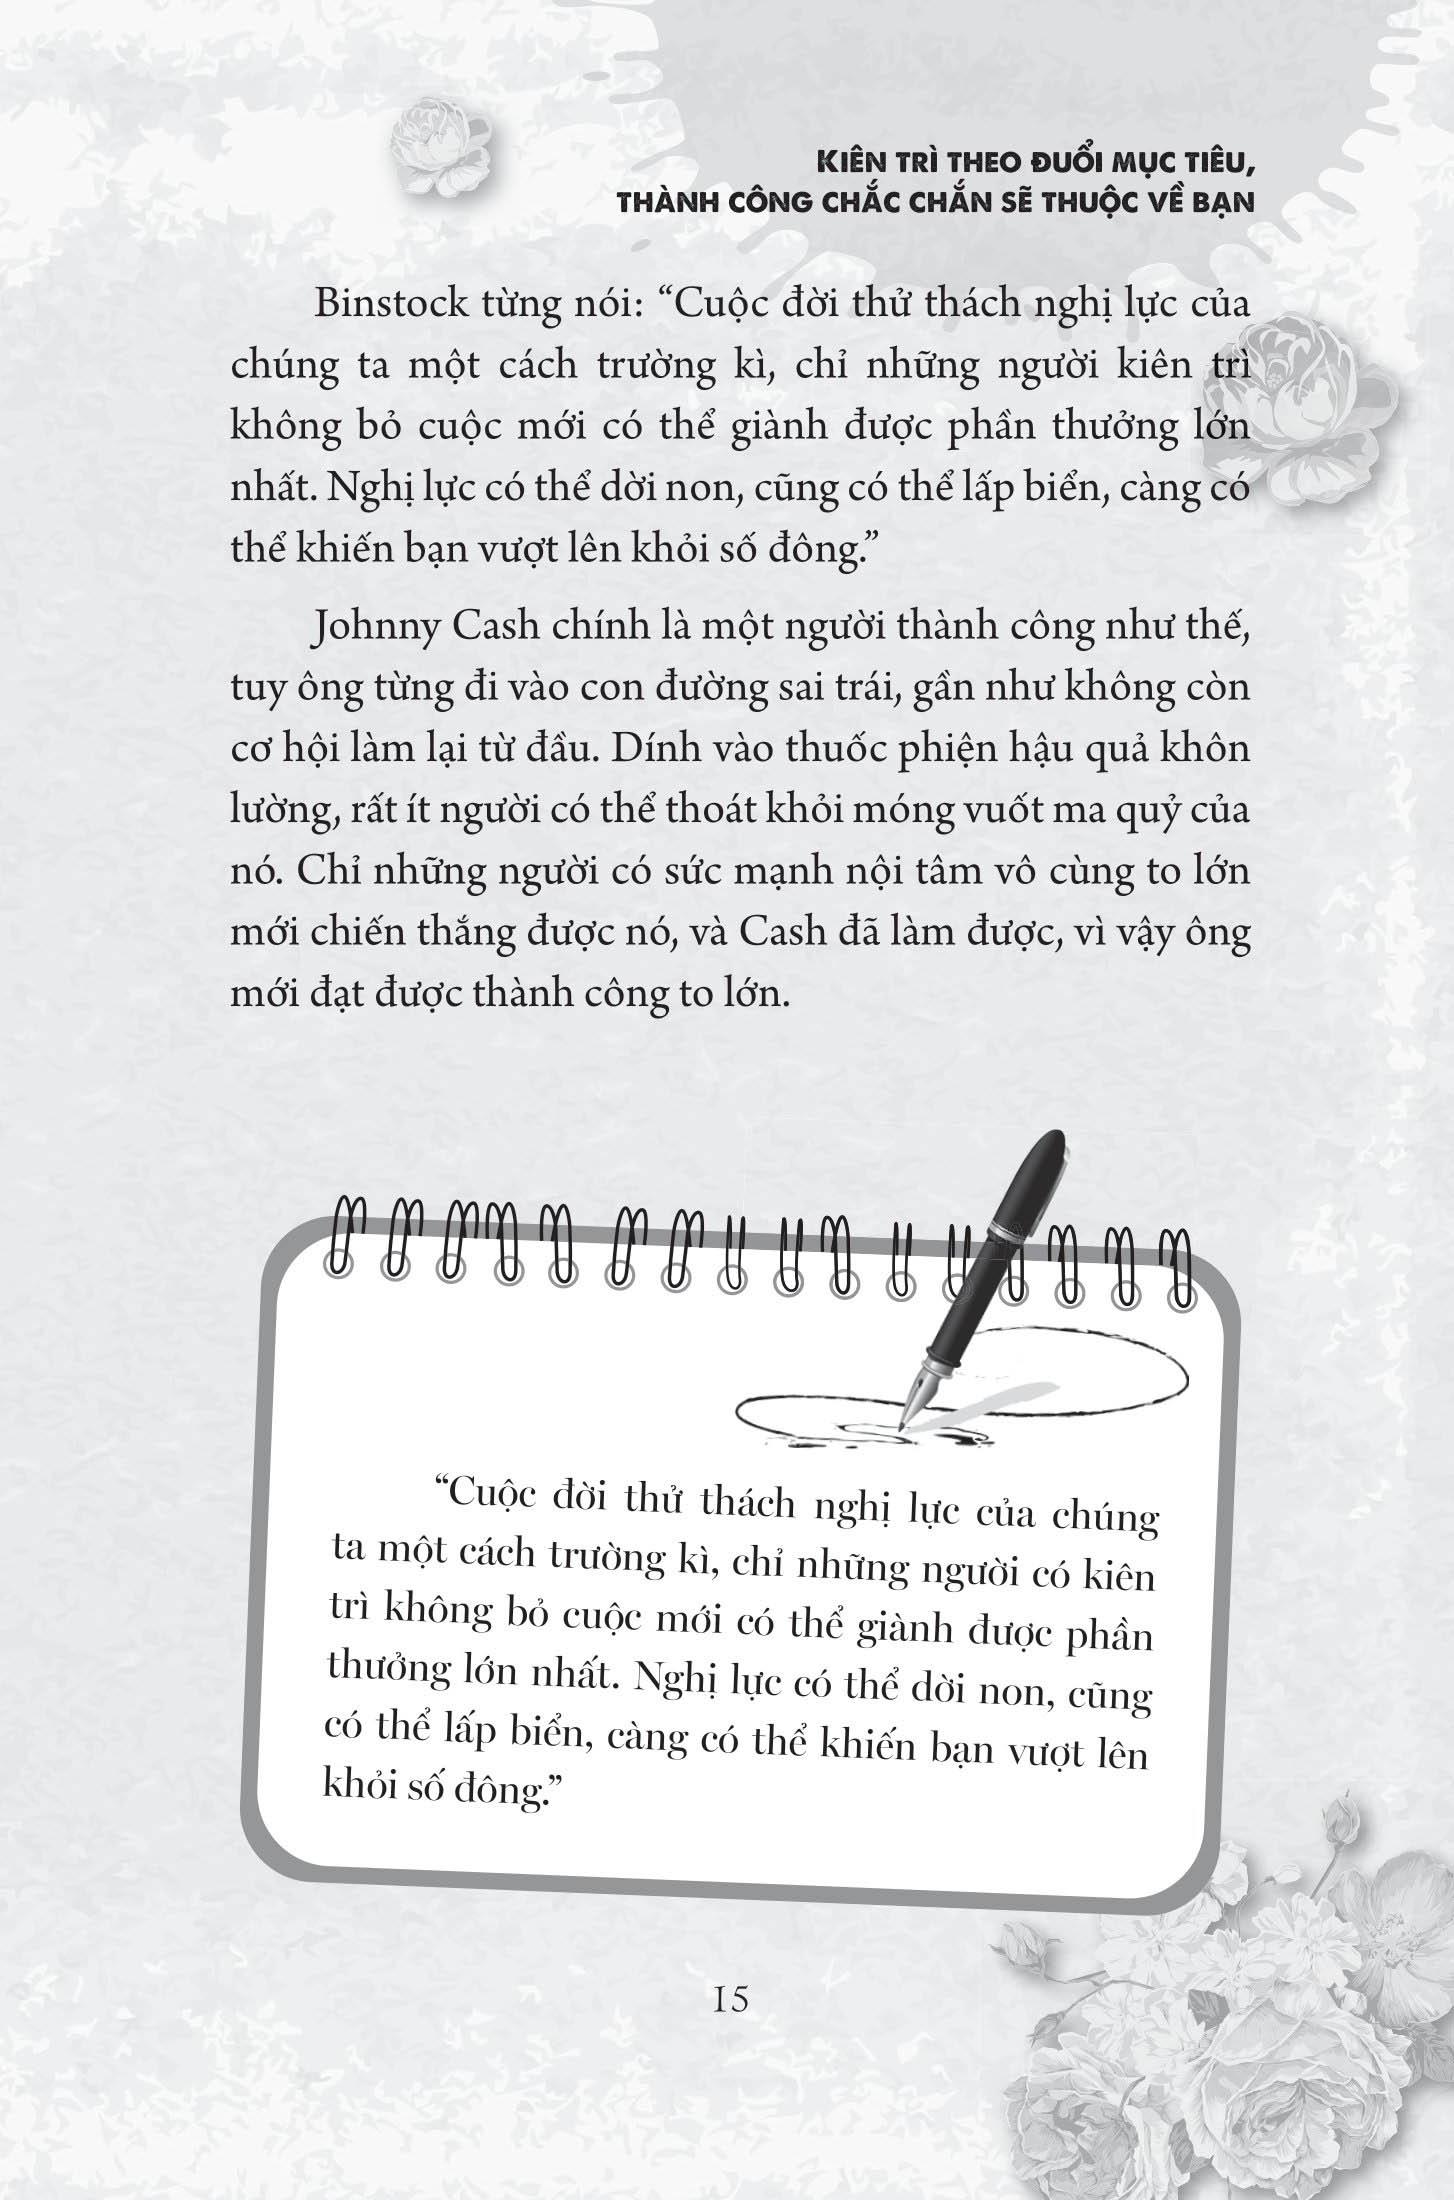 KIÊN TRÌ THEO ĐUỔI MỤC TIÊU,
THÀNH CÔNG CHẮC CHẮN SẼ THUỘC VỀ BẠN
Binstock từng nói: “Cuộc đời thử thách nghị lực của
chúng ta một cách trường kì, chỉ những người kiên trì
không bỏ cuộc mới có thể giành được phần thưởng lớn
nhất. Nghị lực có thể dời non, cũng có thể lấp biển, càng có
thể khiến bạn vượt lên khỏi số đông.”
Johnny Cash chính là một người thành công như thế,
tuy ông từng đi vào con đường sai trái, gần như không còn
cơ hội làm lại từ đầu. Dính vào thuốc phiện hậu quả khôn
lường, rất ít người có thể thoát khỏi móng vuốt ma quỷ của
nó. Chỉ những người có sức mạnh nội tâm vô cùng to lớn
mới chiến thắng được nó, và Cash đã làm được, vì vậy ông
mới đạt được thành công to lớn.
“Cuộc đời thử thách nghị lực của chúng
ta một cách trường kì, chỉ những người có kiên
trì không bỏ cuộc mới có thể giành được phần
thưởng lớn nhất. Nghị lực có thể dời non, cũng
có thể lấp biển, càng có thể khiến bạn vượt lên
khỏi số đông.”
15